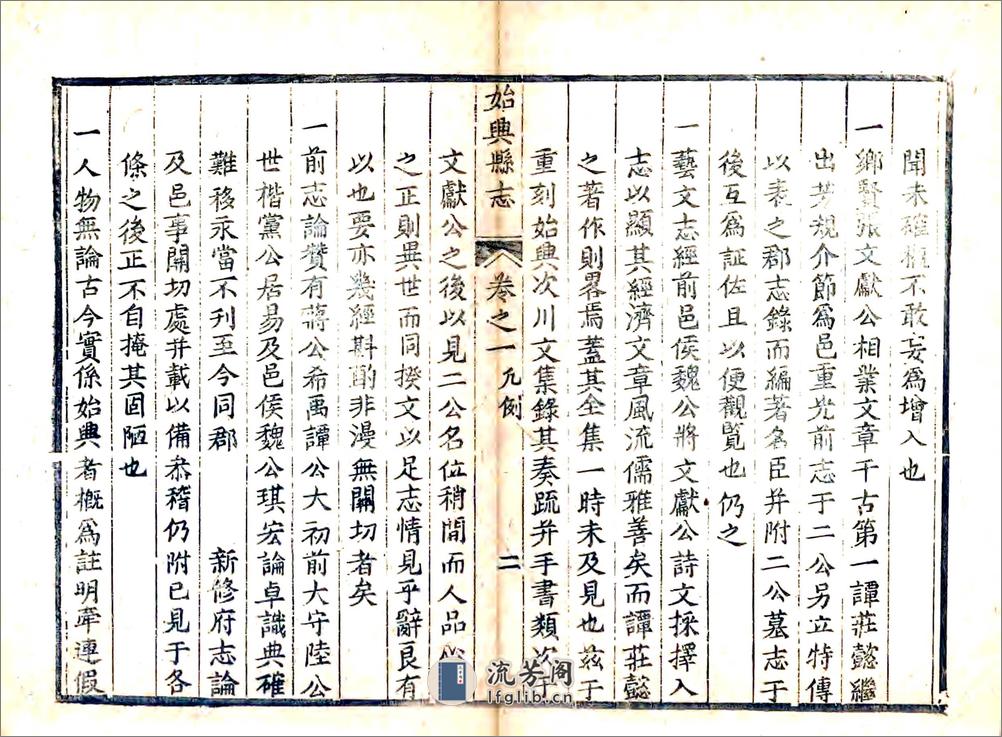 聞未確槪不敢妄爲增入也
一鄉賢張文獻公相業文章千古第一譚莊懿繼
出芳規介節爲邑重光前志于二公另立特傳
以表之郡志錄而編著名臣并附二公墓志于
後互爲証佐且以便觀覽也仍之
一藝文志經前邑侯魏公將文獻公詩文採擇入
志以顯其經濟文章風流儒雅善矣而譚莊懿
之著作則畧焉蓋其全集一時未及見也茲于
重刻始興次川文集錄其奏疏并手書類次于
始興縣志 卷之一 凡例 二
文獻公之後以見二公名位稍間而人品心
之正則異世而同揆文以足志情見乎辭良有
以也要亦幾經斟酌非漫無關切者矣
一前志論贊有蔣公希禹譚公大初前大守陸公
世楷黨公居易及邑侯魏公琪宏論卓識典確
難移永當不刊至今同郡 新修府志論
及邑事關切處并載以備叅稽仍附已見于各
條之後正不自掩其固陋也
一人物無論古今實係始興者槪爲註明牽連假
流芳阁
lfglib.cn